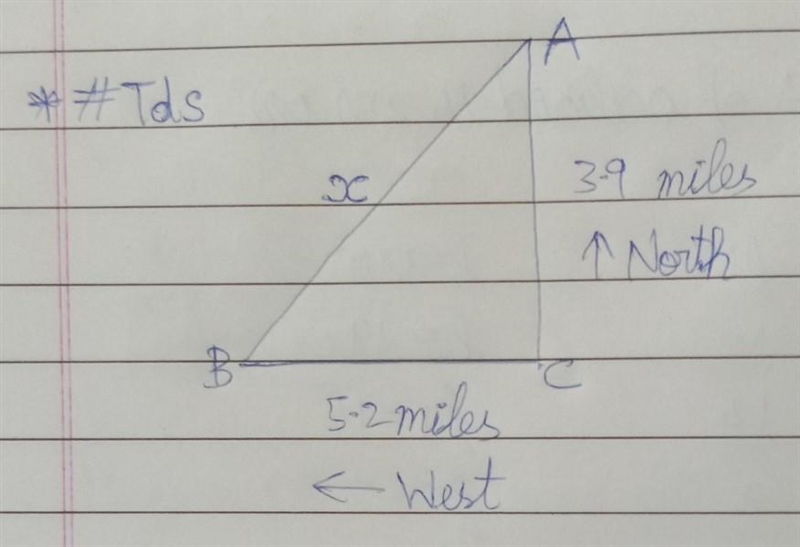 A
* #Tds
x
3.9 miles
↑ North
B
C
5.2 miles
← West